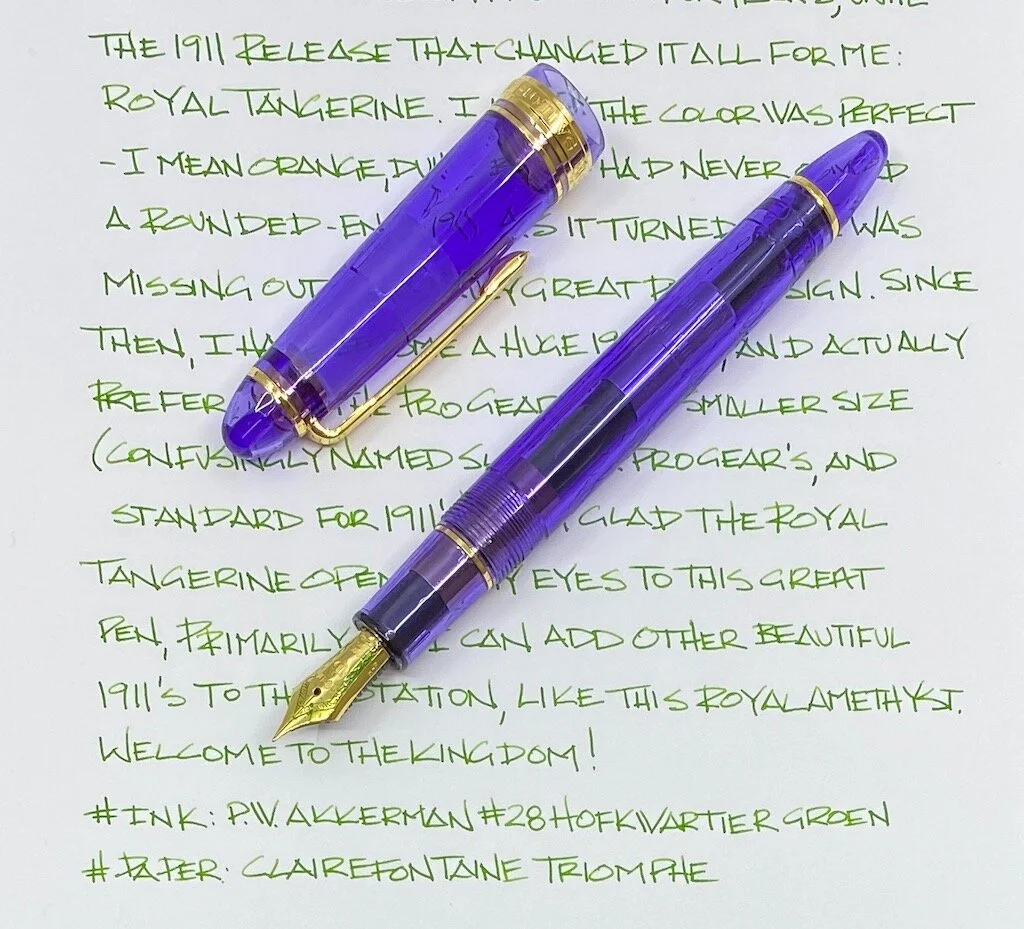 THE 1911 RELEASE THAT CHANGED IT ALL FOR ME:
ROYAL TANGERINE. I THE COLOR WAS PERFECT
- I MEAN ORANGE, HAD NEVER
A ROUNDED- IT TURNED WAS
MISSING OUT GREAT SINCE
THEN, I A HUGE AND ACTUALLY
PREFER THE PRO GEAR SMALLER SIZE
(CONFUSINGLY NAMED PRO GEAR'S, AND
STANDARD FOR 1911' GLAD THE ROYAL
TANGERINE EYES TO THIS GREAT
PEN, PRIMARILY I CAN ADD OTHER BEAUTIFUL
1911'S TO LIKE THIS ROYAL AMETHYST.
WELCOME TO THE KINGDOM!
#INK: P.W. AKKERMAN #28 HOFKWARTIER GROEN
#PAPER: CLAIREFONTAINE TRIOMPHE